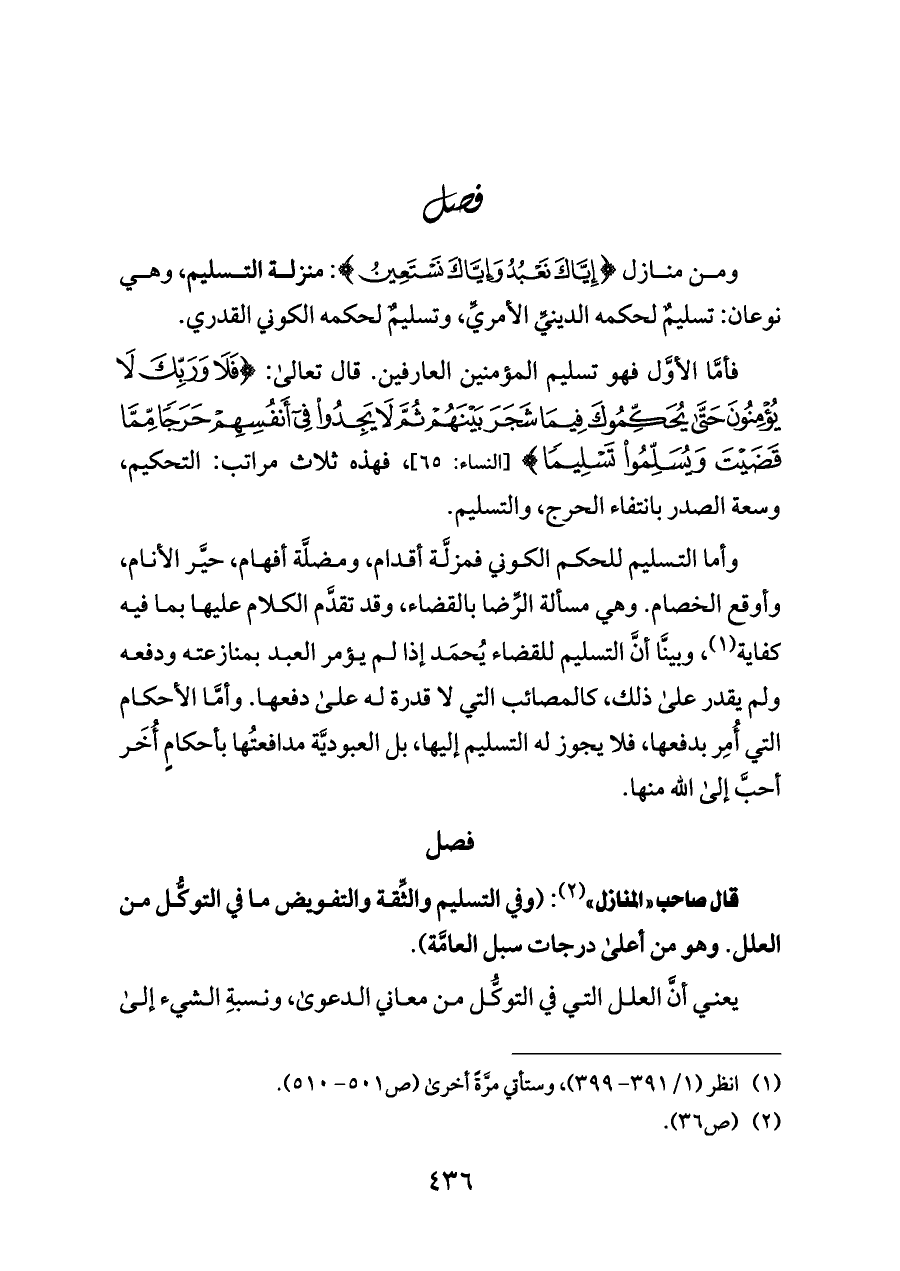 فصل
ومن منازل ﴿إِيَّاكَ نَعْبُدُ وَإِيَّاكَ نَسْتَعِينُ﴾: منزلة التسليم، وهي
نوعان: تسليمٌ لحكمه الدينيِّ الأمريِّ، وتسليمٌ لحكمه الكوني القدري.
فأمَّا الأوَّل فهو تسليم المؤمنين العارفين. قال تعالىٰ: ﴿فَلَا وَرَبِّكَ لَا
يُؤْمِنُونَ حَتَّىٰ يُحَكِّمُوكَ فِيمَا شَجَرَ بَيْنَهُمْ ثُمَّ لَا يَجِدُواْ فِىٓ أَنفُسِهِمْ حَرَجًا مِّمَّا
قَضَيْتَ وَيُسَلِّمُواْ تَسْلِيمًا﴾ [النساء: ٦٥]، فهذه ثلاث مراتب: التحكيم،
وسعة الصدر بانتفاء الحرج، والتسليم.
وأما التسليم للحكم الكوني فمزلَّة أقدام، ومضلَّة أفهام، حيَّر الأنام،
وأوقع الخصام. وهي مسألة الرِّضا بالقضاء، وقد تقدَّم الكلام عليها بما فيه
كفاية(١)، وبينَّا أنَّ التسليم للقضاء يُحمَد إذا لم يؤمر العبد بمنازعته ودفعه
ولم يقدر علىٰ ذلك، كالمصائب التي لا قدرة له علىٰ دفعها. وأمَّا الأحكام
التي أُمِر بدفعها، فلا يجوز له التسليم إليها، بل العبوديَّة مدافعتُها بأحكامٍ أُخَر
أحبَّ إلىٰ الله منها.
فصل
قال صاحب «المنازل»(٢): (وفي التسليم والثِّقة والتفويض ما في التوكُّل من
العلل. وهو من أعلىٰ درجات سبل العامَّة).
يعني أنَّ العلل التي في التوكُّل من معاني الدعوىٰ، ونسبةِ الشيء إلىٰ
(١) انظر (١/ ٣٩١- ٣٩٩)، وستأتي مرَّةً أخرىٰ (ص٥٠١- ٥١٠).
(٢) (ص٣٦).
٤٣٦